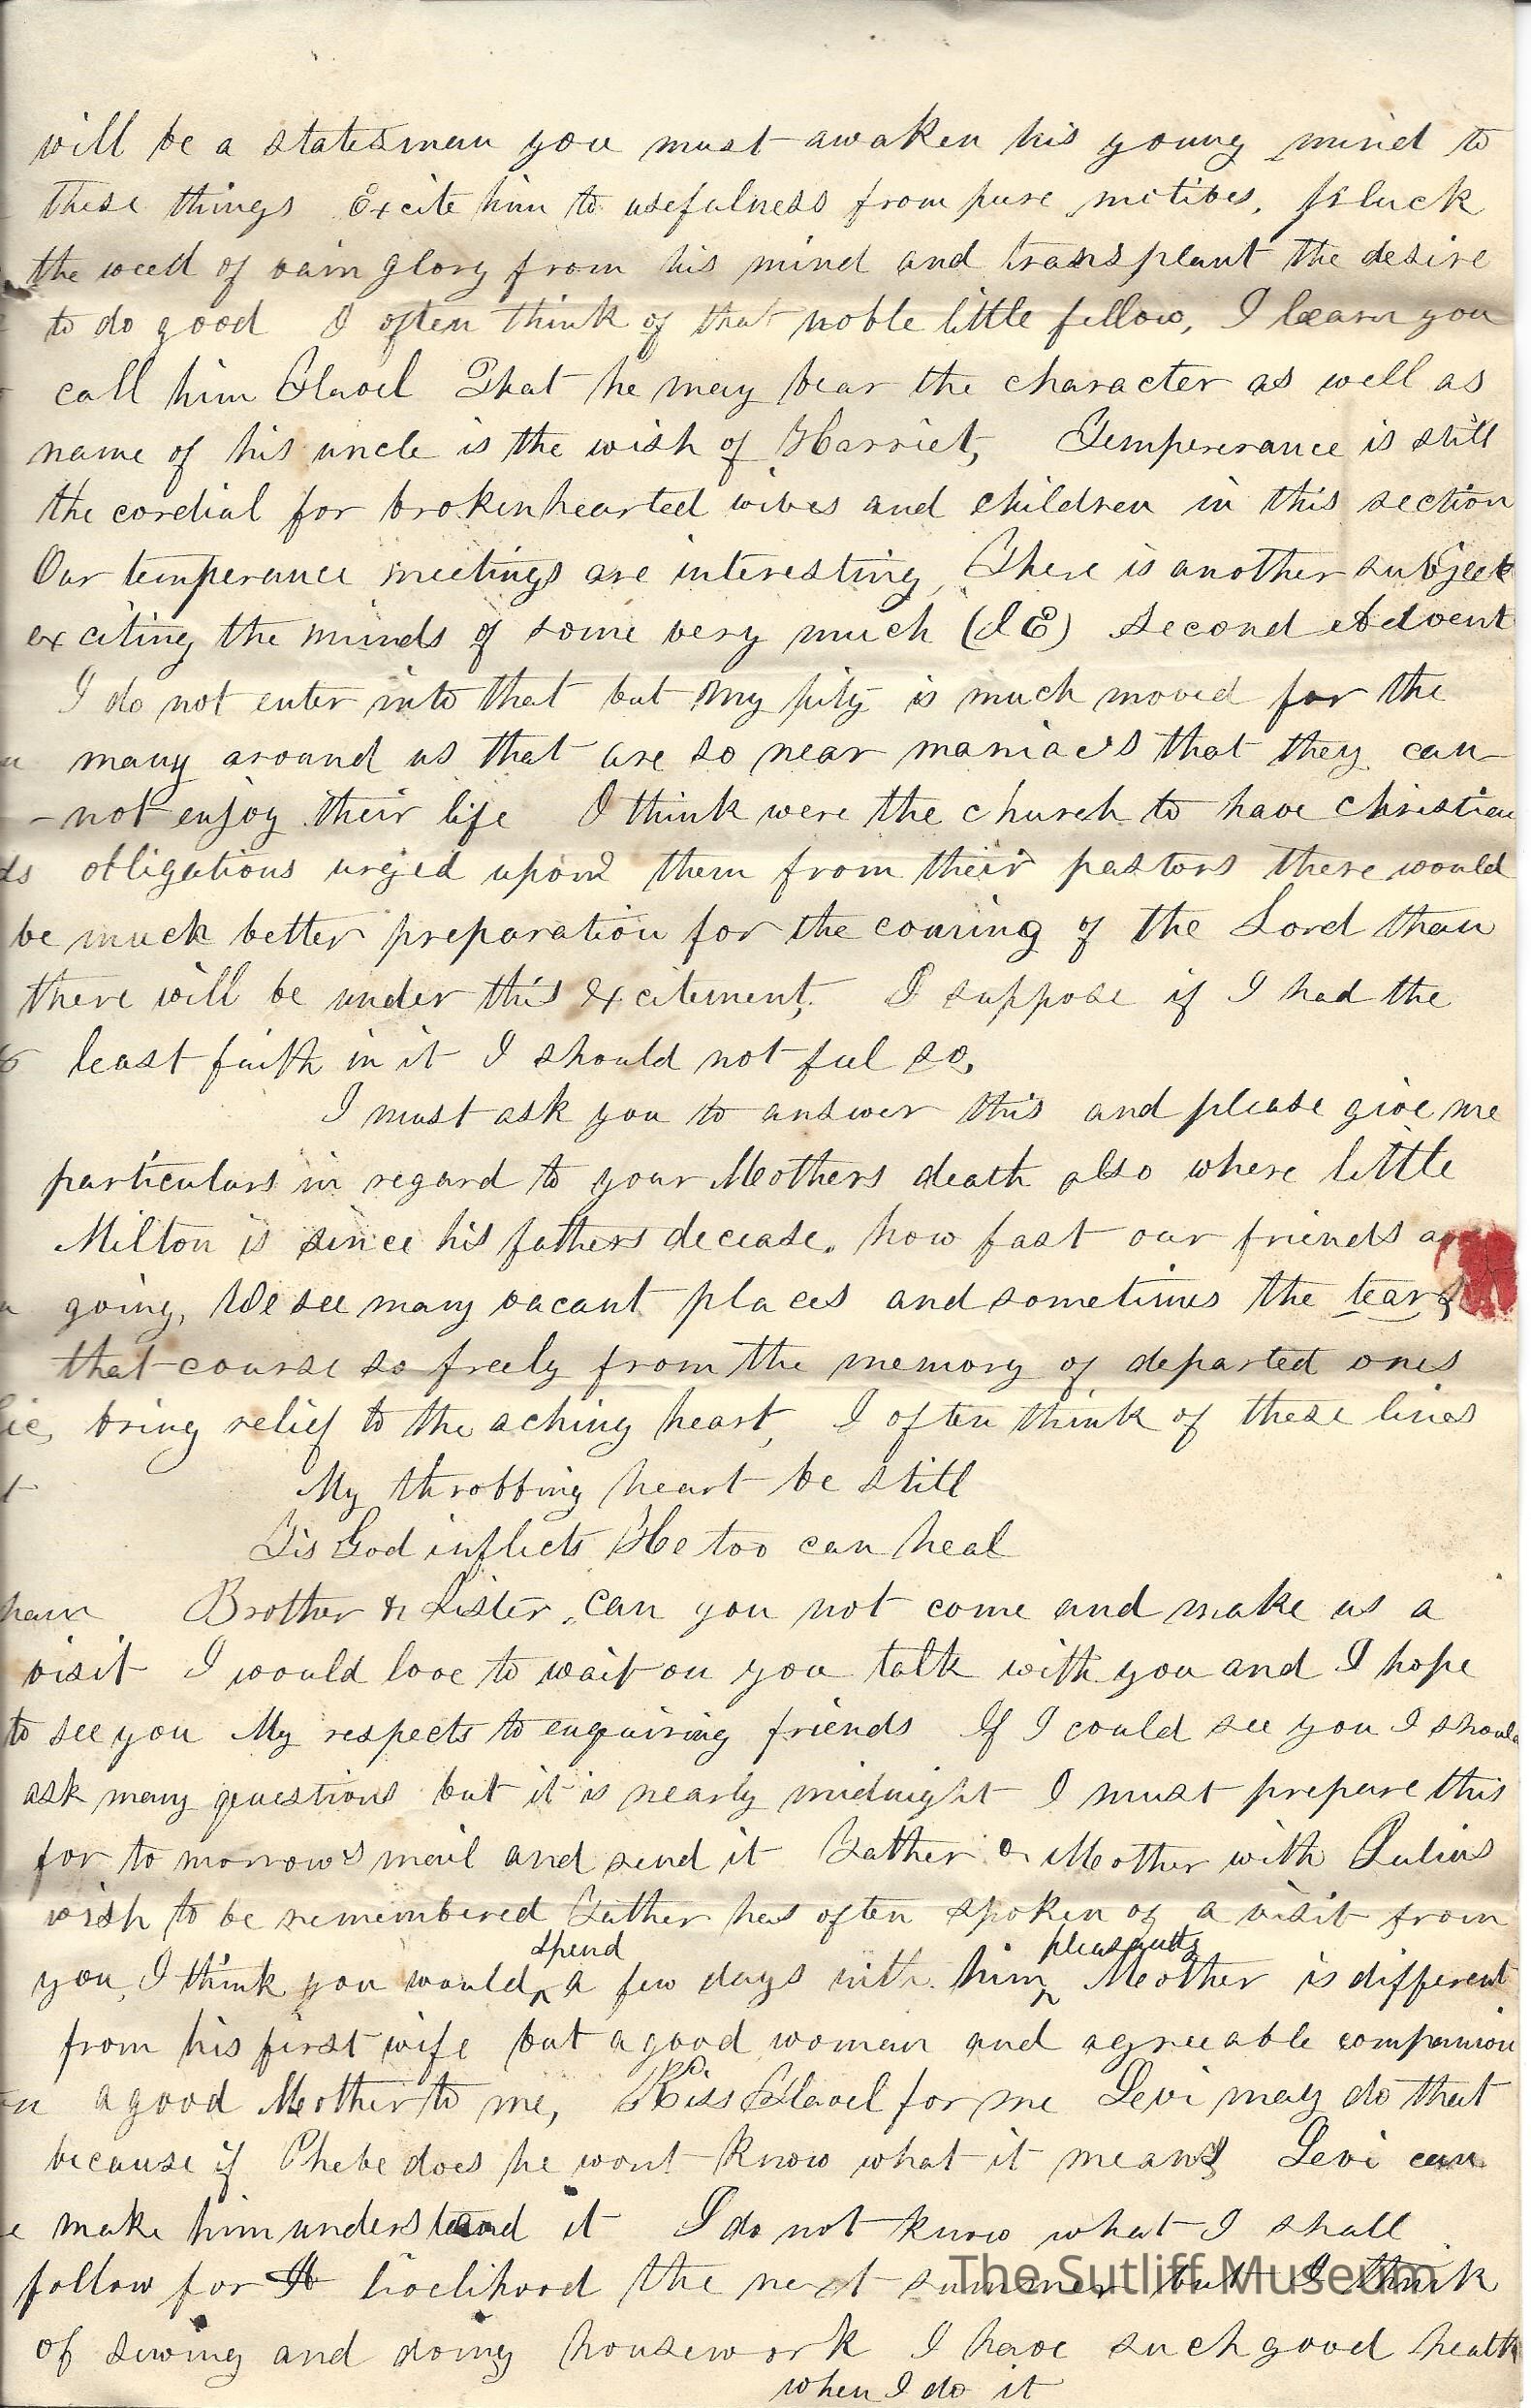 will be a statesman you must awaken his young mind to
these things Excite him to usefulness from pure motives. Pluck
the weed of vain glory from his mind and transplant the desire
to do good I often think of that noble little fellow, I learn you
call him Flavel That he may bear the character as well as
name of his uncle is the wish of Harriet, Tempererance is still
the cordial for brokenhearted wives and children in this section
Our temperance meetings are interesting, There is another subject
exciting the minds of some very much (I E) Second Advent
I do not enter into that but my pity is much moved for the
many around us that are so near maniacs that they can
-not enjoy their life I think were the church to have christian
obligations urged upon them from their pastors there would
be much better preparation for the coming of the Lord than
there will be under this excitement, I suppose if I had the
least faith in it I should not feel so,
I must ask you to answer this and please give me
particulars in regard to your Mothers death also where little
Milton is since his fathers decease. how fast our friends
going, We see many vacant places and sometimes the tears
that course so freely from the memory of departed ones
bring relief to the aching heart, I often think of these lines
My throbbing heart be still
Tis God inflicts He too can heal
Brother & Sister, can you not come and make us a
visit I would love to wait on you talk with you and I hope
to see you My respects to enquiring friends If I could see you I should
ask many questions but it is nearly midnight I must prepare this
for to morrows mail and send it Father & Mother with Julius
wish to be remembered Father has often spoken of a visit from
you, I think you would spend a few days with him pleasantly Mother is different
from his first wife but a good woman and agreeable companion
a good Mother to me, PS. Kiss Flavel for me Levi may do that
because if Phebe does he wont know what it means Levi can
make him understand it I do not know what I shall
follow for a livelihood the next summer but I think
of sewing and doing housework I have such good health
when I do it
The Sutliff Museum